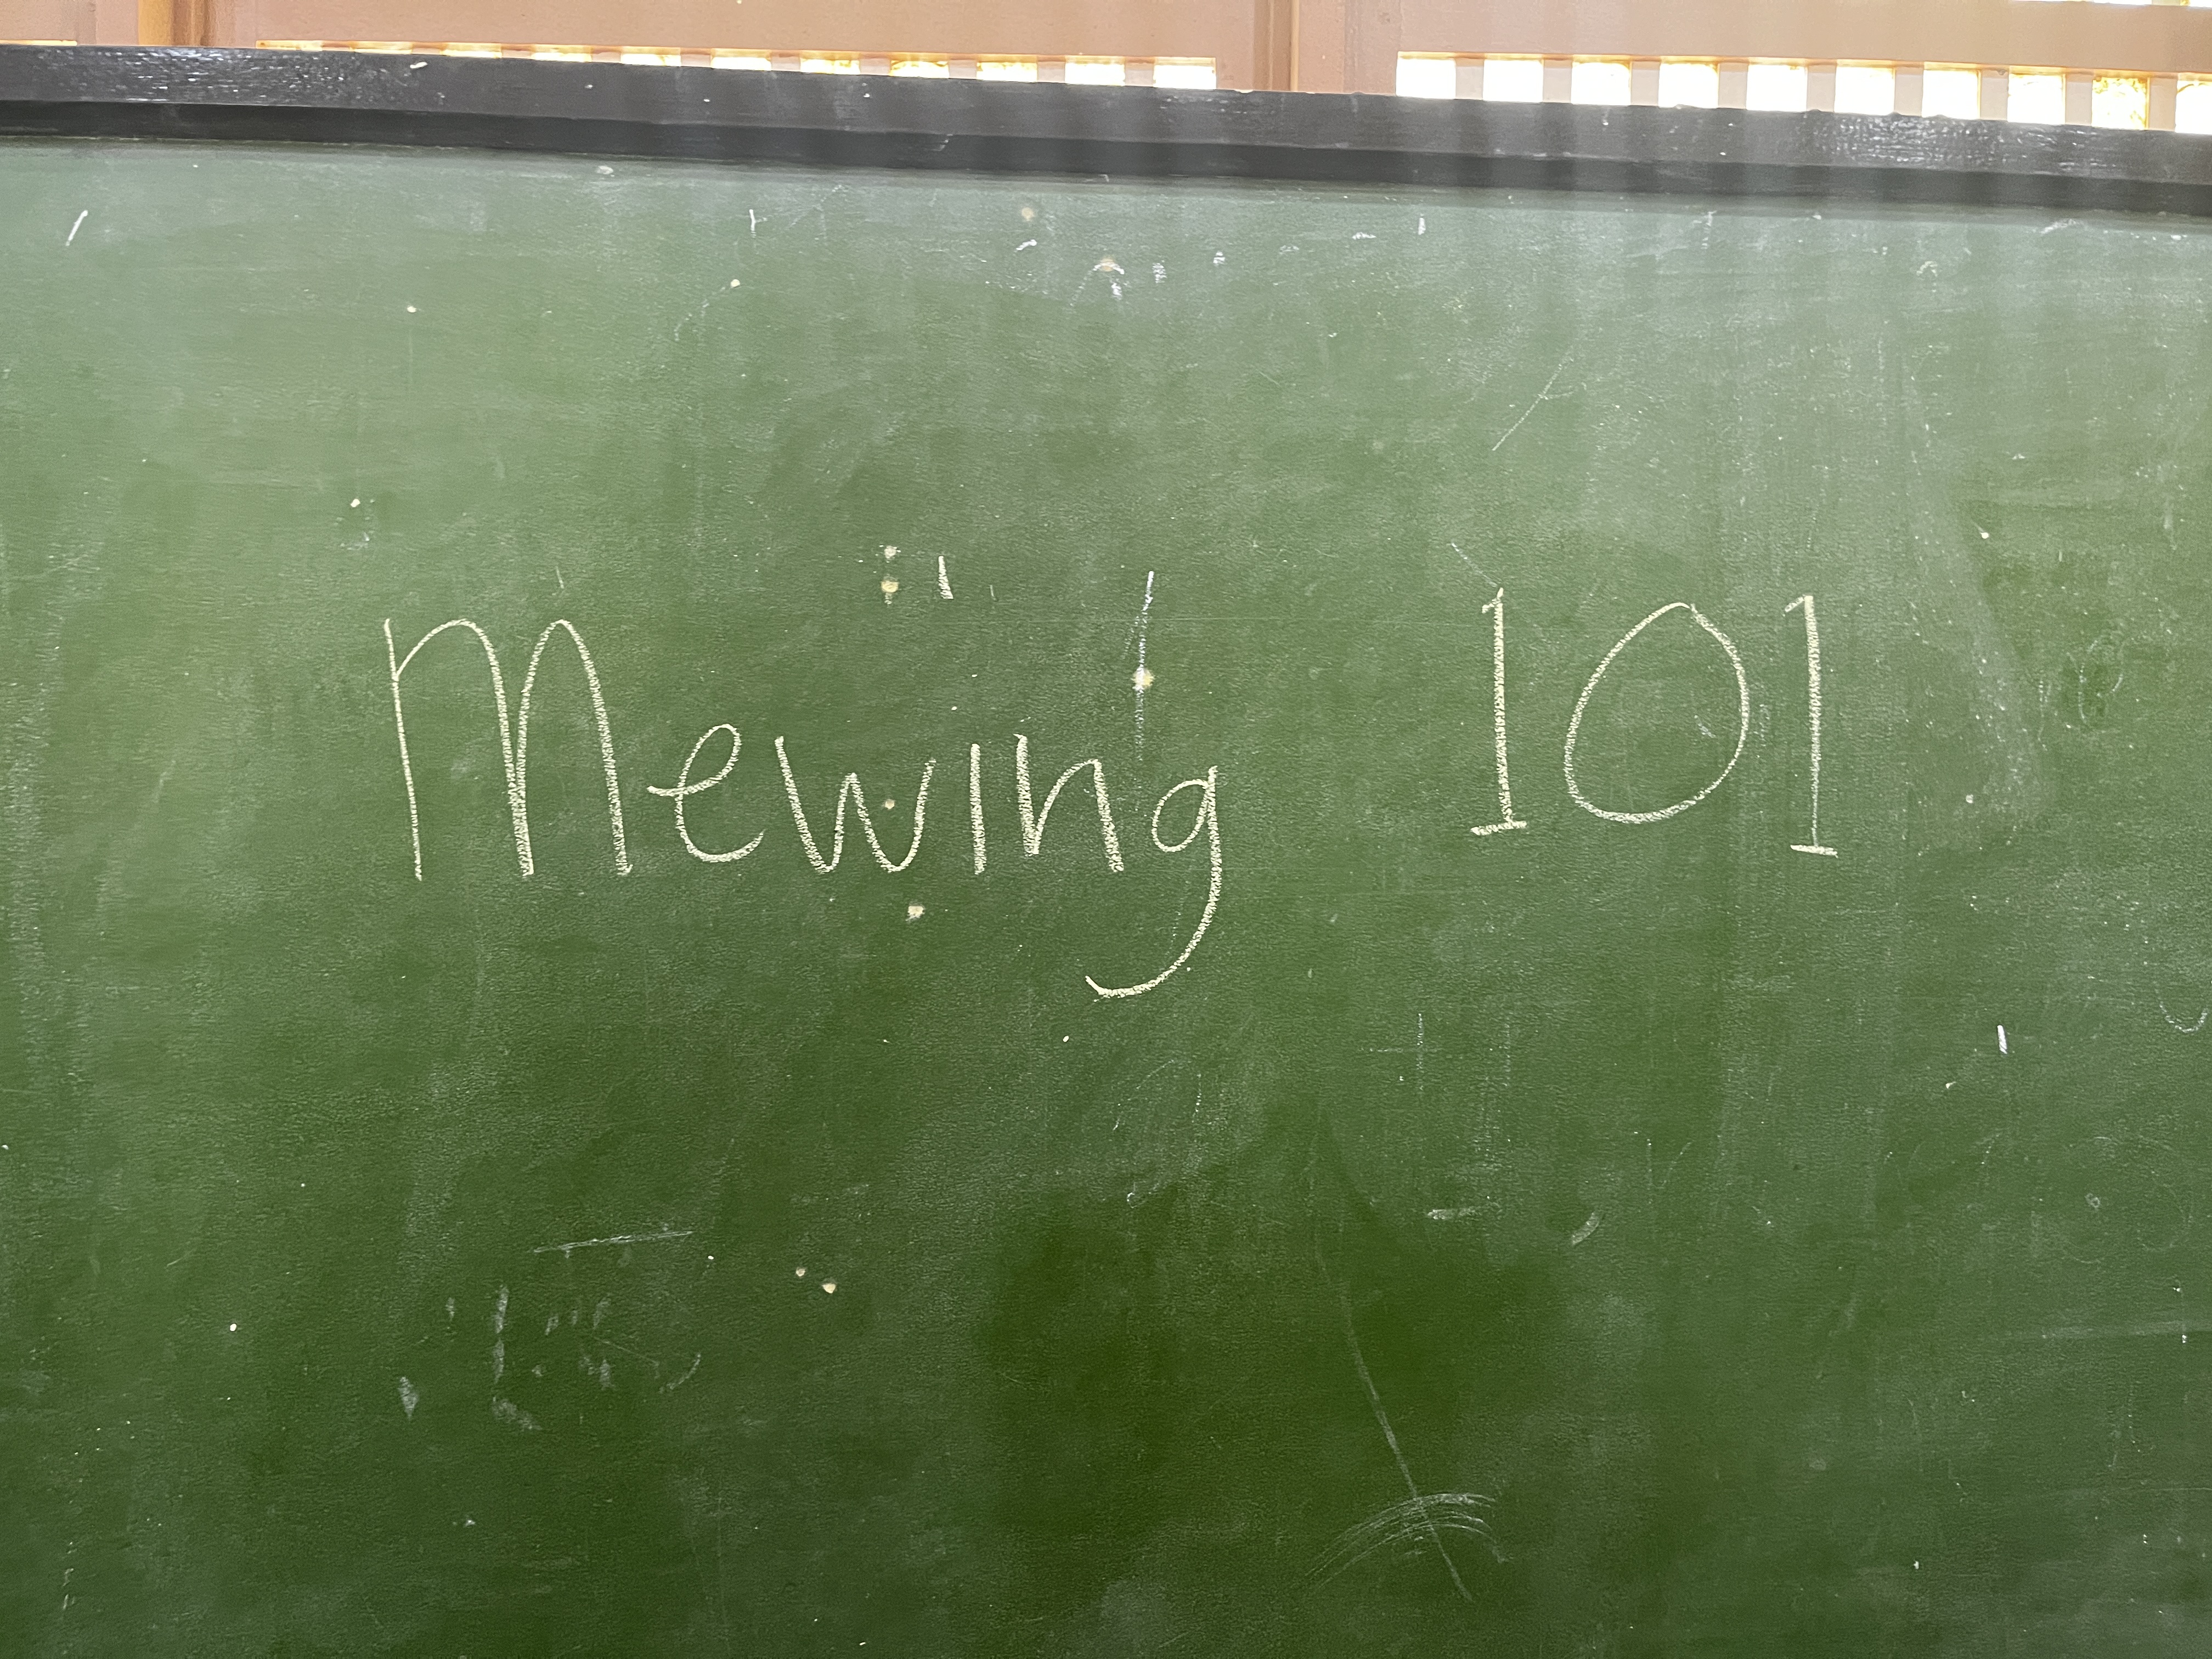 Mewing 101